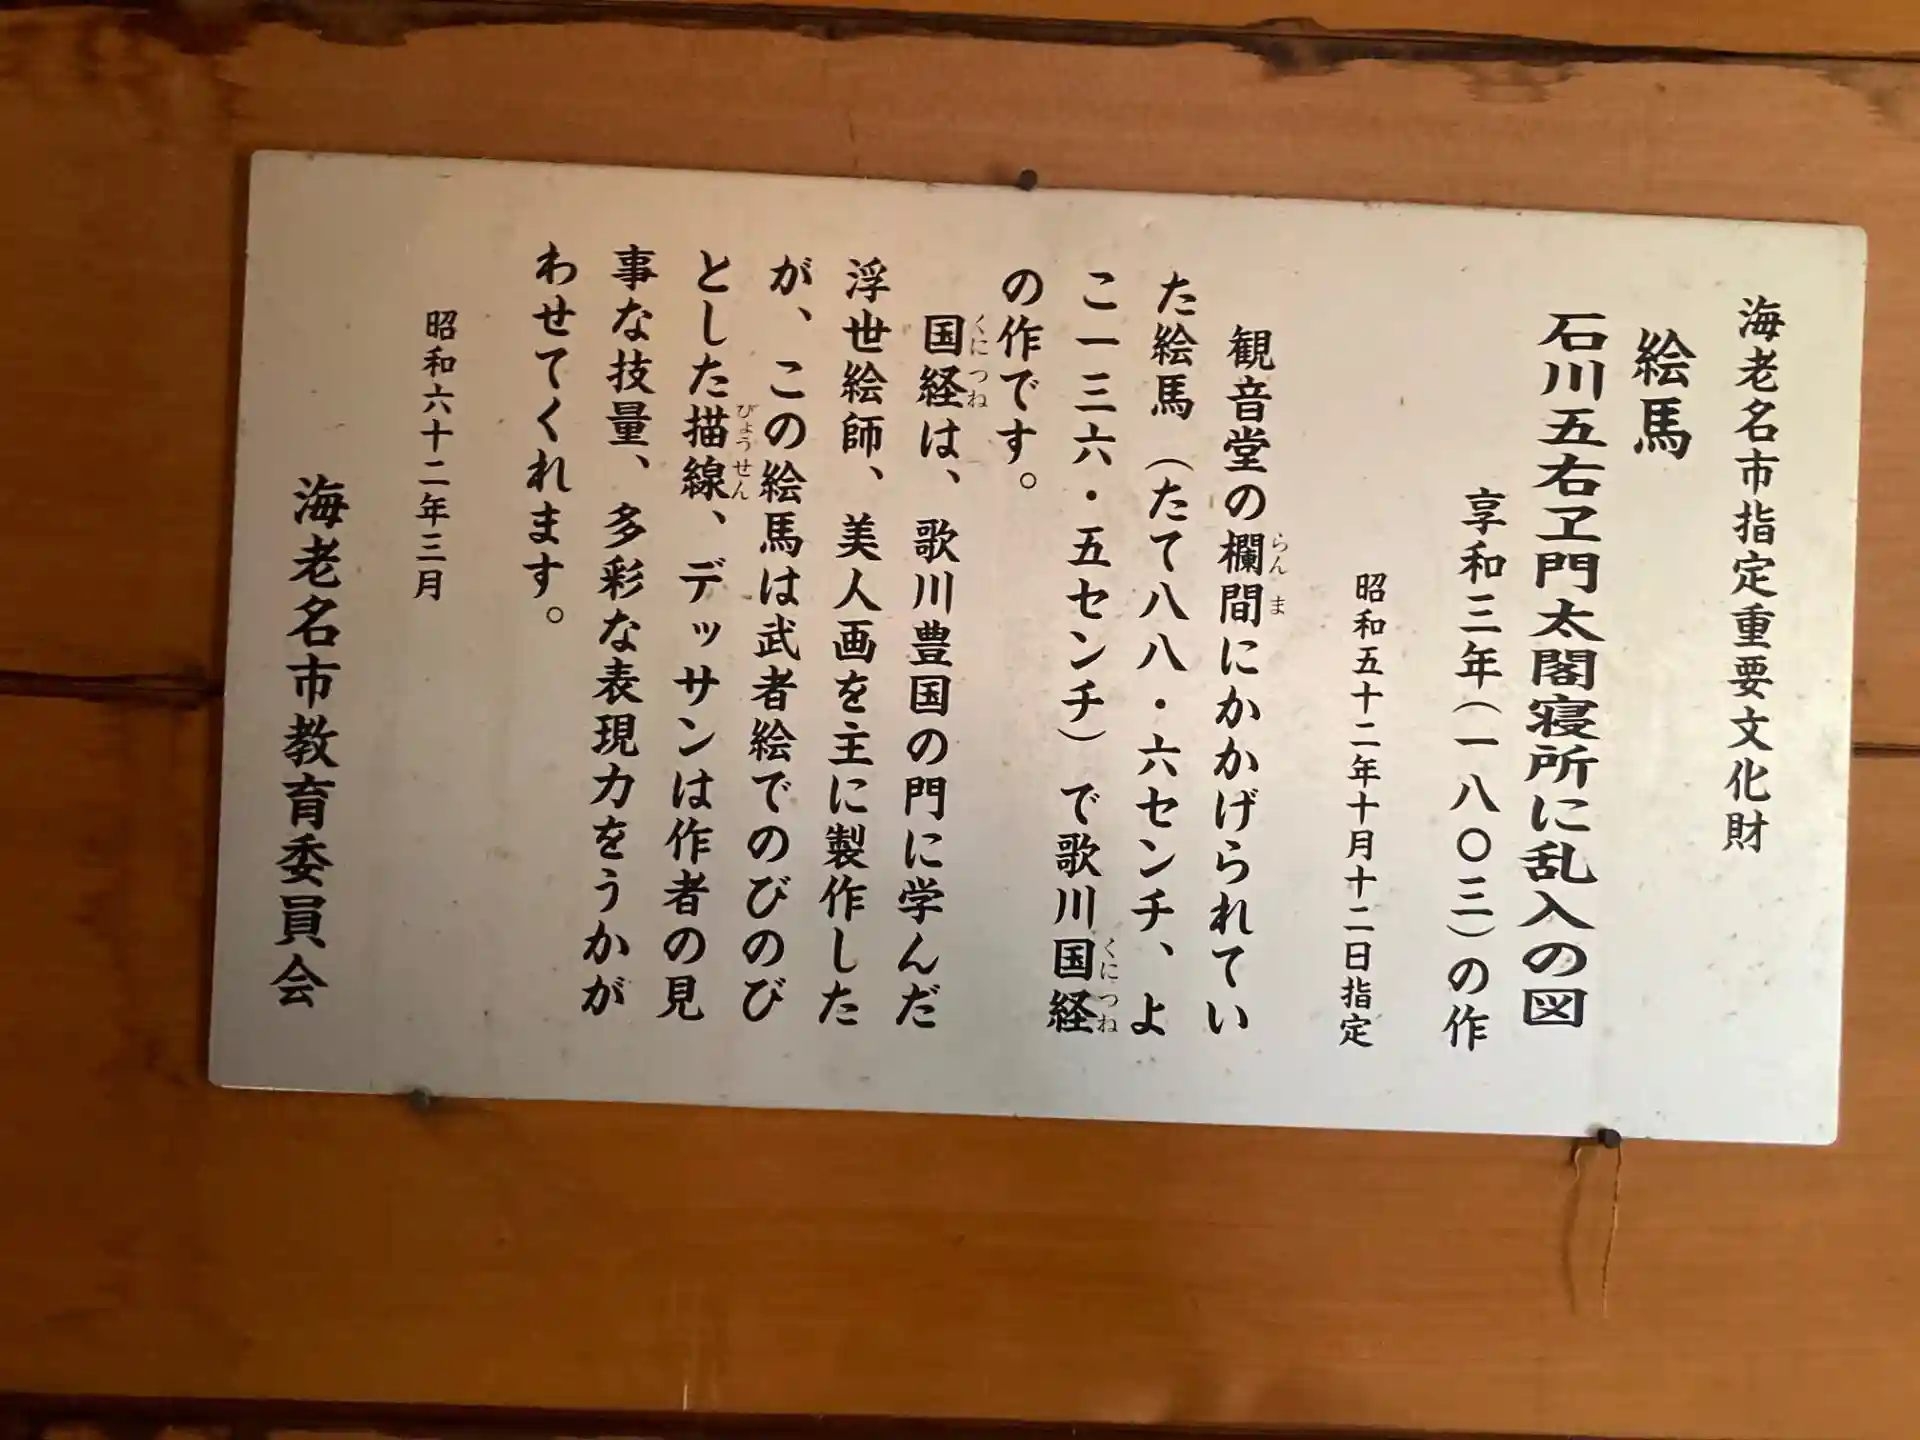 海老名市指定重要文化財
絵馬
石川五右ヱ門太閤寝所に乱入の図
享和三年(一八〇三)の作
昭和五十二年十月十二日指定
観音堂の欄間にかかげられてい
らんま
た絵馬(たて八八・六センチ、よ
こ一三六・五センチ)で歌川国経
くにつね
の作です。
国経は、歌川豊国の門に学んだ
くにつね
浮世絵師、美人画を主に製作した
が、この絵馬は武者絵でのびのび
とした描線、デッサンは作者の見
びょうせん
事な技量、多彩な表現力をうかが
わせてくれます。
昭和六十二年三月
海老名市教育委員会